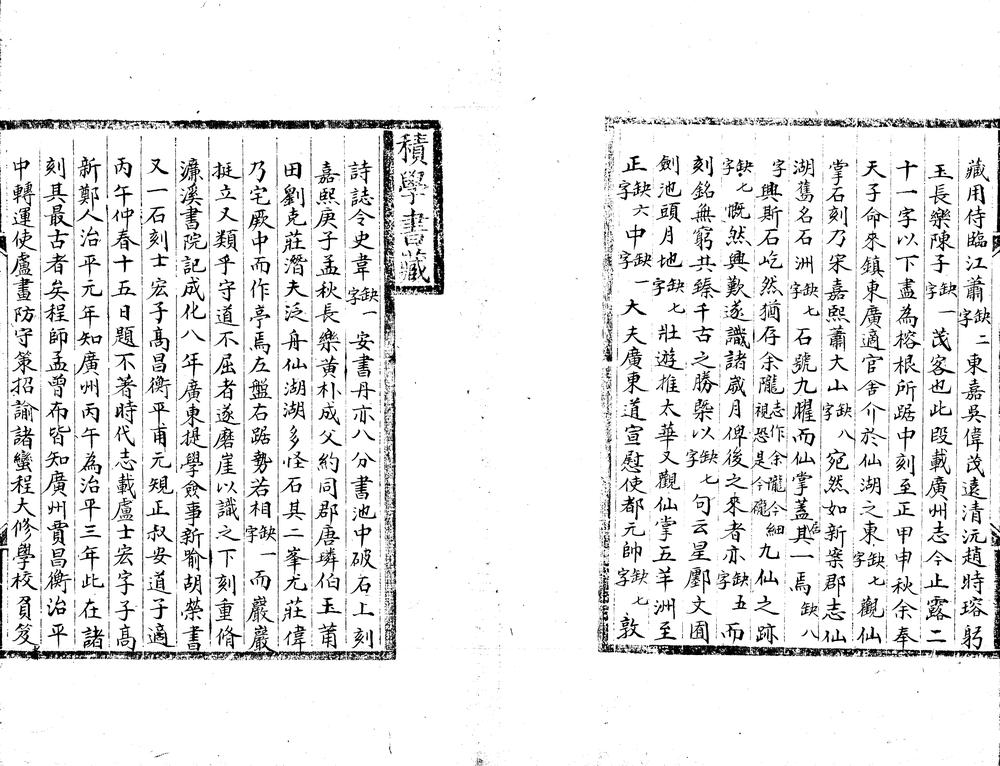 藏用侍臨江蕭缺二字東嘉吳偉茂遠清沅趙時瑢躬
玉長樂陳子缺一字茂客也此段載廣州志今止露二
十一字以下盡為榕根所踞中刻至正甲申秋余奉
天子命來鎮東廣適官舍介於仙湖之東缺七字觀仙
掌石刻乃宋嘉熙蕭大山缺八字宛然如新案郡志仙
湖舊名石洲缺七字石號九曜而仙掌蓋居其一焉缺八
字興斯石屹然猶存余隴志作余儱今細視恐是今隴九仙之跡
缺七字慨然興歎遂識諸歲月俾後之來者亦缺五字而
刻銘無窮共臻千古之勝槩以缺七字句云星酈文囿
劍池頭月地也缺七字壯遊推太華又觀仙掌五羊洲至
正缺六字中缺一字大夫廣東道宣慰使都元帥缺七字敦
積學書藏
詩誌令史韋缺一字安書丹亦八分書池中破石上刻
嘉熙庚子孟秋長樂黃朴成父約同郡唐璘伯玉莆
田劉克莊潛夫泛舟仙湖湖多怪石其二峯尤莊偉
乃宅厥中而作亭焉左盤右踞勢若相缺一字而巖巖
挺立又類乎守道不屈者遂磨崖以識之下刻重脩
濂溪書院記成化八年廣東提學僉事新喻胡榮書
又一石刻士宏子高昌衡平甫元規正叔安道子適
丙午仲春十五日題不著時代志載盧士宏字子高
新鄭人治平元年知廣州丙午為治平三年此在諸
刻其最古者矣程師孟曾布皆知廣州賈昌衡治平
中轉運使盧畫防守策招諭諸蠻程大修學校負笈